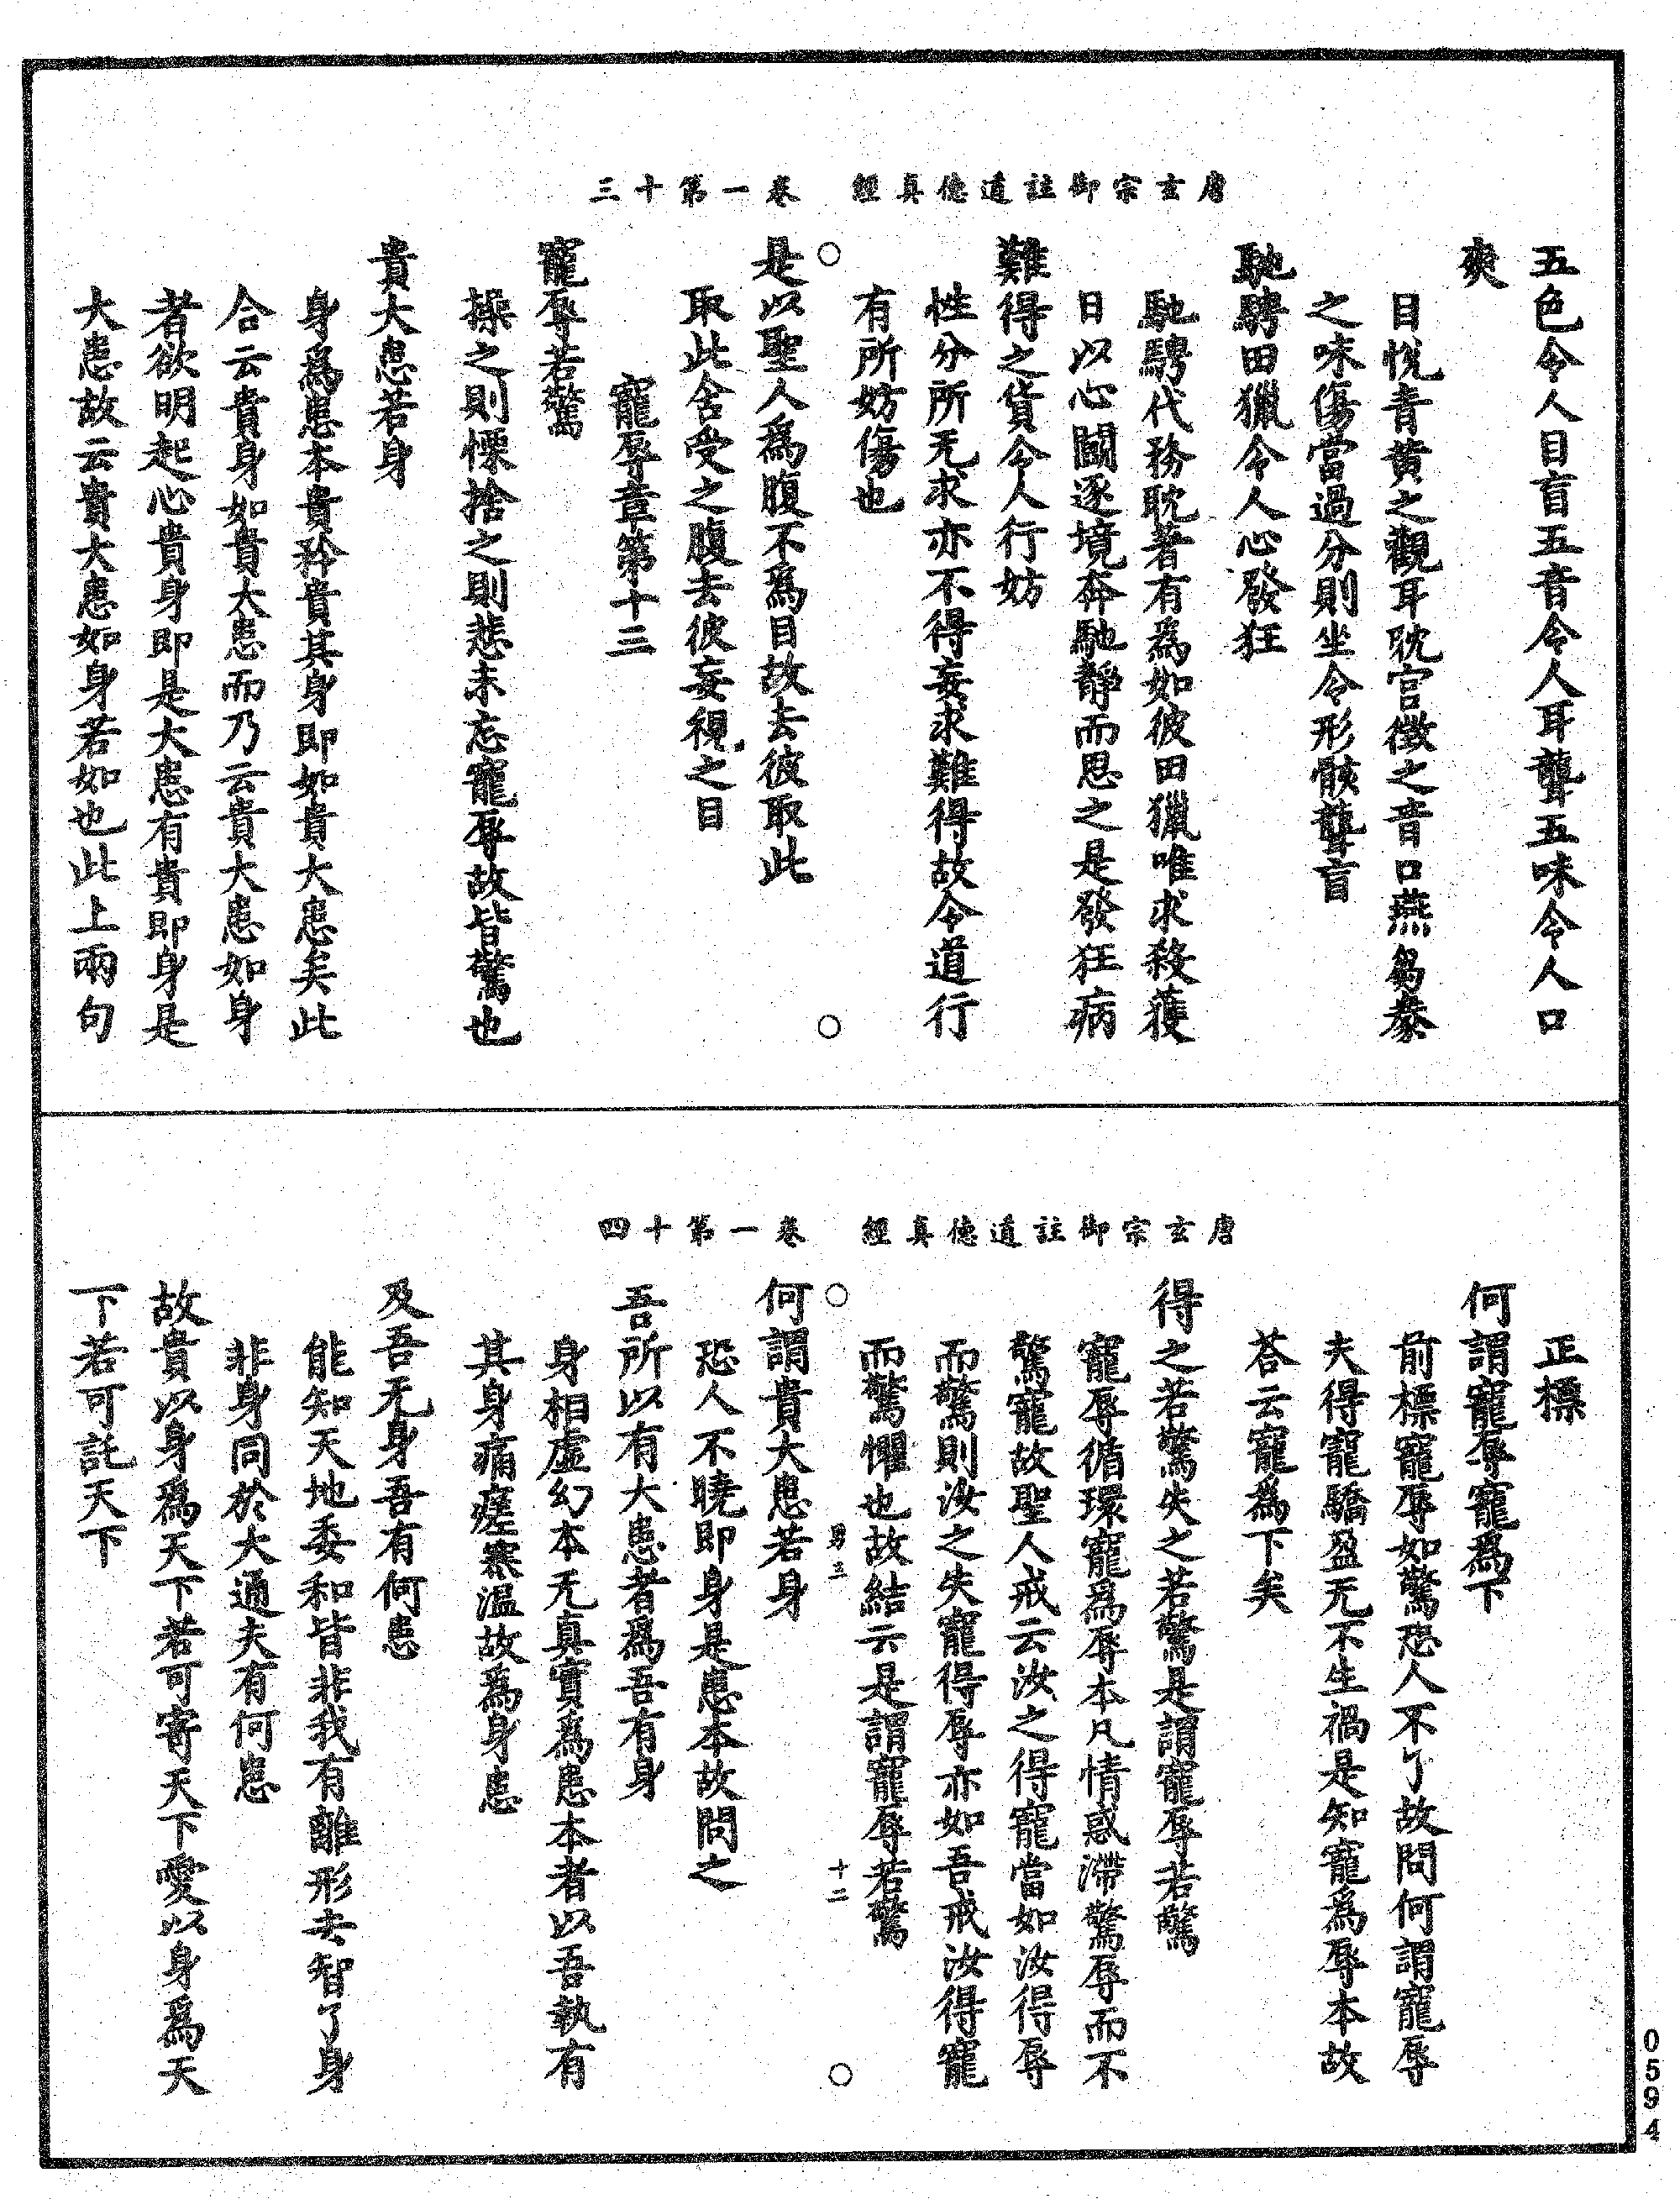 唐玄宗御註道德真經　卷一第十三
五色令人目盲五音令人耳聾五味令人口
爽
目悅青黃之觀耳耽宮徵之音口燕芻豢
之味傷當過分則坐令形骸聾盲
馳騁田獵令人心發狂
馳騁代務耽著有為如彼田獵唯求殺獲
日以心鬭逐境奔馳靜而思之是發狂病
難得之貨令人行妨
性分所无求亦不得妄求難得故令道行
有所妨傷也
○　○
是以聖人為腹不為目故去彼取此
取此含受之腹去彼妄視之目
寵辱章第十三
寵辱若驚
操之則慄捨之則悲未忘寵辱故皆驚也
貴大患若身
身為患本貴矜貴其身即如貴大患矣此
合云貴身如貴大患而乃云貴大患如身
者欲明起心貴身即是大患有貴即身是
大患故云貴大患如身若如也此上兩句
唐玄宗御註道德真經　卷一第十四
正標
何謂寵辱寵為下
前標寵辱如驚恐人不了故問何謂寵辱
夫得寵驕盈无不生禍是知寵為辱本故
荅云寵為下矣
得之若驚失之若驚是謂寵辱若驚
寵辱循環寵為辱本凡情惑滯驚辱而不
驚寵故聖人戒云汝之得寵當如汝得辱
而驚則汝之失寵得辱亦如吾戒汝得寵
而驚懼也故結云是謂寵辱若驚
○　男三　十二　○
何謂貴大患若身
恐人不曉即身是患本故問之
吾所以有大患者為吾有身
身相虛幻本无真實為患本者以吾執有
其身痛瘥寒溫故為身患
及吾无身吾有何患
能知天地委和皆非我有離形去智了身
非身同於大通夫有何患
故貴以身為天下若可寄天下愛以身為天
下若可託天下
0594